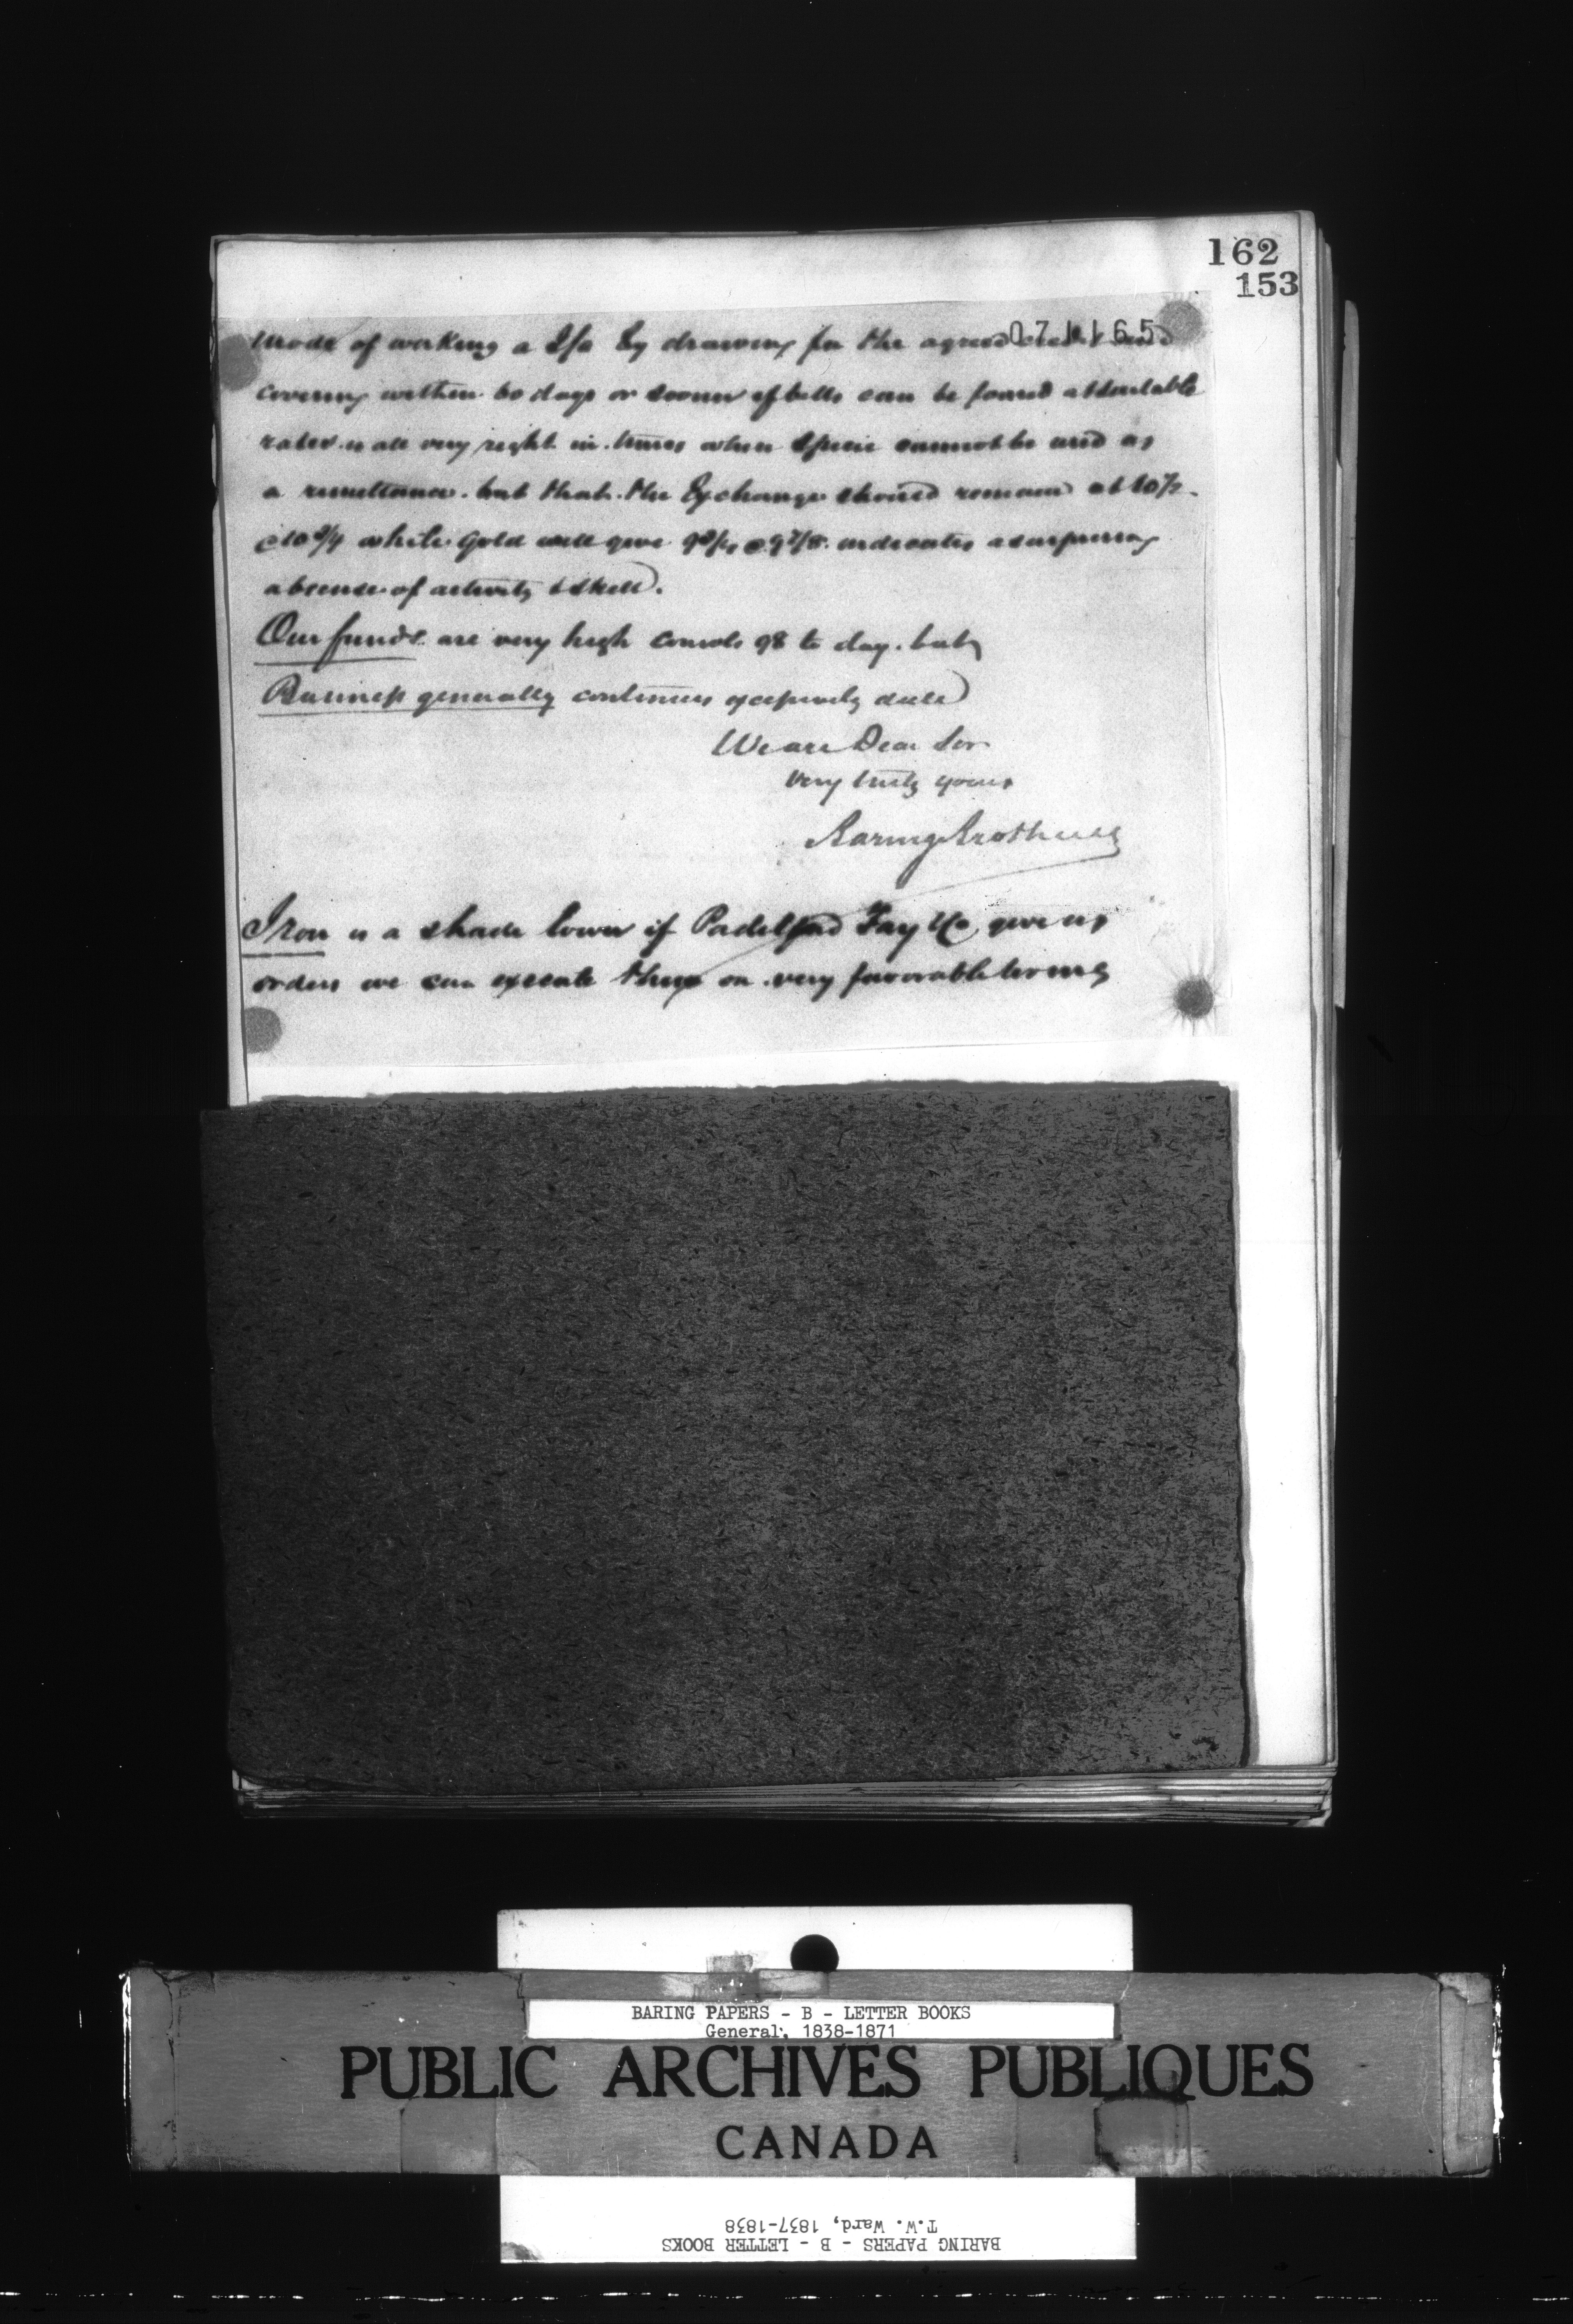 162
153
071165
mode of working a J/a by drawing for the agreed and
covering within 60 days or sooner if bills can be found at suitable
rates is all very right in times when specie cannot be used as
a remittance. but that the Exchange should remain at 10½
@ 10¾ while Gold will give 9¾ @ 9⅞ indicates a surprising
absence of activity & skill.
Our funds are very high consols 98 to day. but
Business generally continues excessively dull
We are Dear Sir
very truly yours
Baring Brothers &
Iron is a shade lower if Padelford Fay & Co give us
orders we can execute them on very favorable terms
BARING PAPERS - B - LETTER BOOKS
General, 1838-1871
PUBLIC ARCHIVES PUBLIQUES
CANADA
BARING PAPERS - B - LETTER BOOKS
T.W. Ward, 1837-1838